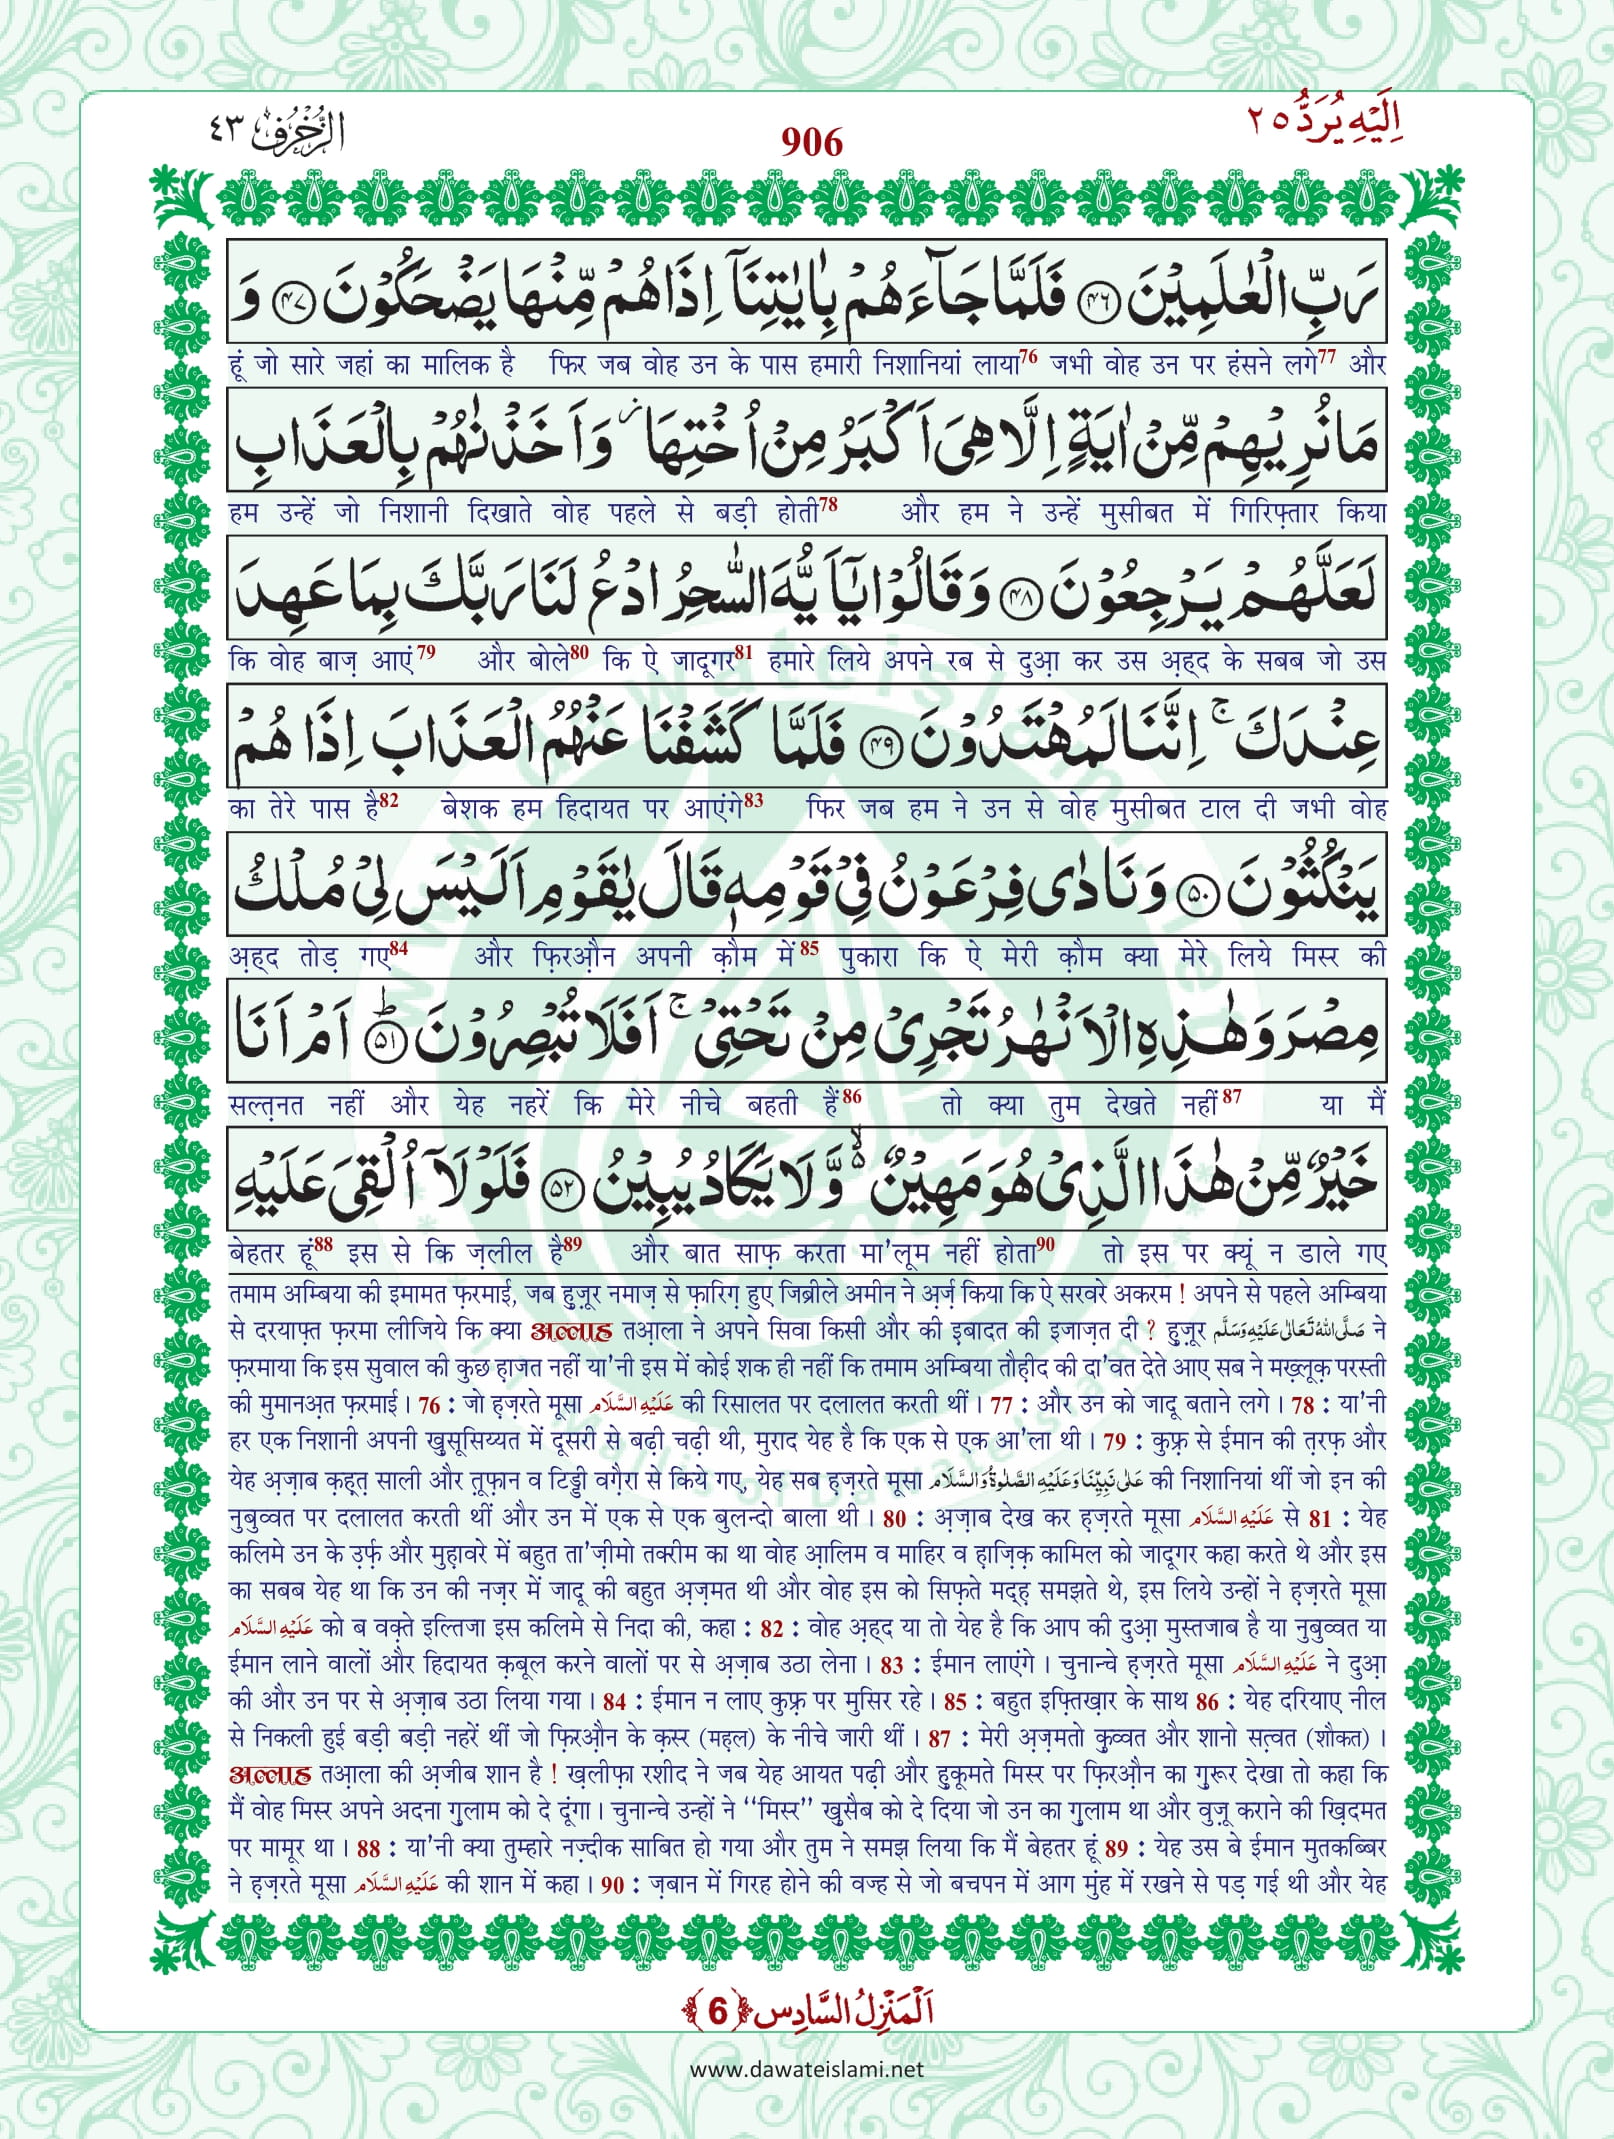 الزُّخْرُف ٤٣
906
اِلَیْهِ یُرَدُّ ٢٥
رَبِّ الْعٰلَمِیْنَ ﴿۴۶﴾ فَلَمَّا جَآءَهُمْ بِاٰیٰتِنَاۤ اِذَا هُمْ مِّنْهَا یَضْحَكُوْنَ ﴿۴۷﴾ وَ
हूं जो सारे जहां का मालिक है फिर जब वोह उन के पास हमारी निशानियां लाया76 जभी वोह उन पर हंसने लगे77 और
مَا نُرِیْهِمْ مِّنْ اٰیَةٍ اِلَّا هِیَ اَكْبَرُ مِنْ اُخْتِهَا٘ وَ اَخَذْنٰهُمْ بِالْعَذَابِ
हम उन्हें जो निशानी दिखाते वोह पहले से बड़ी होती78 और हम ने उन्हें मुसीबत में गिरिफ़्तार किया
لَعَلَّهُمْ یَرْجِعُوْنَ ﴿۴۸﴾ وَ قَالُوْا یٰۤاَیُّهَ السّٰحِرُ ادْعُ لَنَا رَبَّكَ بِمَا عَهِدَ
कि वोह बाज़ आएं79 और बोले80 कि ऐ जादूगर81 हमारे लिये अपने रब से दुआ़ कर उस अ़ह्द के सबब जो उस
عِنْدَكَۚ اِنَّنَا لَمُهْتَدُوْنَ ﴿۴۹﴾ فَلَمَّا كَشَفْنَا عَنْهُمُ الْعَذَابَ اِذَا هُمْ
का तेरे पास है82 बेशक हम हिदायत पर आएंगे83 फिर जब हम ने उन से वोह मुसीबत टाल दी जभी वोह
یَنْكُثُوْنَ ﴿۵۰﴾ وَ نَادٰى فِرْعَوْنُ فِیْ قَوْمِهٖ قَالَ یٰقَوْمِ اَلَیْسَ لِیْ مُلْكُ
अ़ह्द तोड़ गए84 और फ़िरऔ़न अपनी क़ौम में85 पुकारा कि ऐ मेरी क़ौम क्या मेरे लिये मिस्र की
مِصْرَ وَ هٰذِهِ الْاَنْهٰرُ تَجْرِیْ مِنْ تَحْتِیْۚ اَفَلَا تُبْصِرُوْنَؕ ﴿۵۱﴾ اَمْ اَنَا
सल्त़नत नहीं और येह नहरें कि मेरे नीचे बहती हैं86 तो क्या तुम देखते नहीं87 या मैं
خَیْرٌ مِّنْ هٰذَا الَّذِیْ هُوَ مَهِیْنٌ ۙ۬ وَّ لَا یَكَادُ یُبِیْنُ ﴿۵۲﴾ فَلَوْلَاۤ اُلْقِیَ عَلَیْهِ
बेहतर हूं88 इस से कि ज़लील है89 और बात साफ़ करता मा'लूम नहीं होता90 तो इस पर क्यूं न डाले गए
तमाम अम्बिया की इमामत फ़रमाई, जब हुज़ूर नमाज़ से फ़ारिग़ हुए जिब्रीले अमीन ने अर्ज़ किया कि ऐ सरवरे अकरम ! अपने से पहले अम्बिया
से दरयाफ़्त फ़रमा लीजिये कि क्या अल्लाह तआ़ला ने अपने सिवा किसी और की इ़बादत की इजाज़त दी ? हुज़ूर صَلَّى اللّٰهُ تَعَالٰى عَلَیْهِ وَسَلَّم ने
फ़रमाया कि इस सुवाल की कुछ ह़ाजत नहीं या'नी इस में कोई शक ही नहीं कि तमाम अम्बिया तौह़ीद की दा'वत देते आए सब ने मख़्लूक़ परस्ती
की मुमानअ़त फ़रमाई । 76 : जो ह़ज़रते मूसा عَلَیْهِ السَّلَام की रिसालत पर दलालत करती थीं । 77 : और उन को जादू बताने लगे । 78 : या'नी
हर एक निशानी अपनी खुसूसिय्यत में दूसरी से बढ़ी चढ़ी थी, मुराद येह है कि एक से एक आ'ला थी । 79 : कुफ़्र से ईमान की त़रफ़ और
येह अ़ज़ाब क़ह़त़ साली और त़ूफ़ान व टिड्डी वग़ैरा से किये गए, येह सब ह़ज़रते मूसा عَلٰى نَبِیِّنَا وَعَلَیْهِ الصَّلٰوةُ وَالسَّلَام की निशानियां थीं जो इन की
नुबुव्वत पर दलालत करती थीं और उन में एक से एक बुलन्दो बाला थी । 80 : अ़ज़ाब देख कर ह़ज़रते मूसा عَلَیْهِ السَّلَام से 81 : येह
कलिमे उन के उ़र्फ़ और मुह़ावरे में बहुत ता'ज़ीमो तक्रीम का था वोह आ़लिम व माहिर व ह़ाज़िक़ कामिल को जादूगर कहा करते थे और इस
का सबब येह था कि उन की नज़र में जादू की बहुत अ़ज़मत थी और वोह इस को सिफ़ते मद्ह़ समझते थे, इस लिये उन्हों ने ह़ज़रते मूसा
عَلَیْهِ السَّلَام को ब वक़्ते इल्तिजा इस कलिमे से निदा की, कहा : 82 : वोह अ़ह्द या तो येह है कि आप की दुआ़ मुस्तजाब है या नुबुव्वत या
ईमान लाने वालों और हिदायत क़बूल करने वालों पर से अ़ज़ाब उठा लेना । 83 : ईमान लाएंगे । चुनान्चे ह़ज़रते मूसा عَلَیْهِ السَّلَام ने दुआ़
की और उन पर से अ़ज़ाब उठा लिया गया । 84 : ईमान न लाए कुफ़्र पर मुसिर रहे । 85 : बहुत इफ़्तिख़ार के साथ 86 : येह दरियाए नील
से निकली हुई बड़ी बड़ी नहरें थीं जो फ़िरऔ़न के क़स्र (महल) के नीचे जारी थीं । 87 : मेरी अ़ज़मतो क़ुव्वत और शानो सत़्वत (शौकत) ।
अल्लाह तआ़ला की अ़जीब शान है ! ख़लीफ़ा रशीद ने जब येह आयत पढ़ी और हुकूमते मिस्र पर फ़िरऔ़न का ग़ुरूर देखा तो कहा कि
मैं वोह मिस्र अपने अदना ग़ुलाम को दे दूंगा । चुनान्चे उन्हों ने ‘‘मिस्र’’ ख़ुसैब को दे दिया जो उन का ग़ुलाम था और वुज़ू कराने की ख़िदमत
पर मामूर था । 88 : या'नी क्या तुम्हारे नज़्दीक साबित हो गया और तुम ने समझ लिया कि मैं बेहतर हूं 89 : येह उस बे ईमान मुतकब्बिर
ने ह़ज़रते मूसा عَلَیْهِ السَّلَام की शान में कहा । 90 : ज़बान में गिरह होने की वज्ह से जो बचपन में आग मुंह में रखने से पड़ गई थी और येह
اَلْمَنْزِلُ السَّادِس ﴿6﴾
www.dawateislami.net